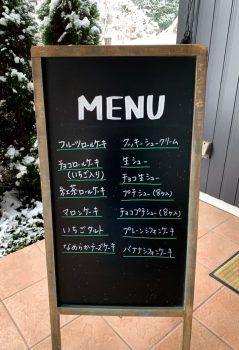 MENU
フルーツロールケーキ
チョコロールケーキ
(いちご入り)
紅茶ロールケーキ
マロンケーキ
いちごタルト
なめらかチーズケーキ
クッキーシュークリーム
生シュー
チョコ生シュー
プチシュー(8ヶ入)
チョコプチシュー(8ヶ入)
プレーンシフォンケーキ
バナナシフォンケーキ